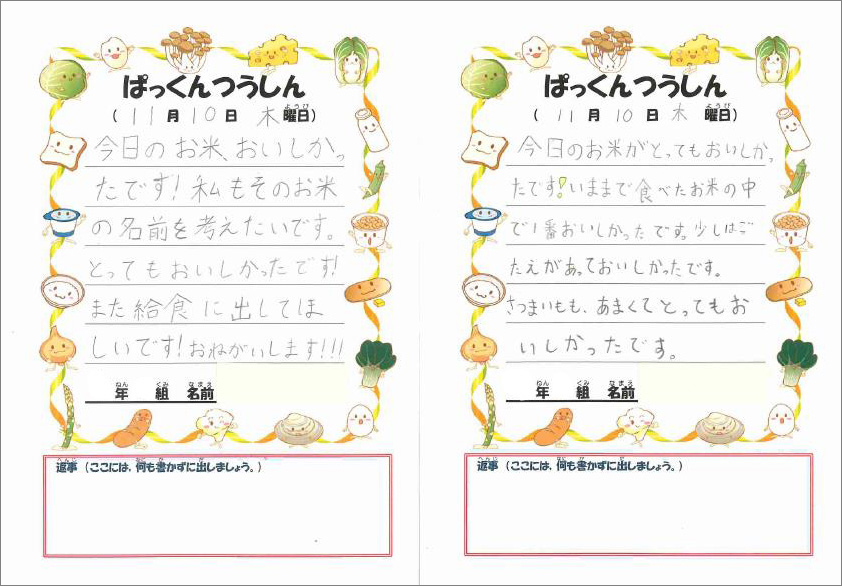 ぱっくんつうしん
(11月10日木曜日)
ようび
今日のお米、おいしかっ
たです!私もそのお米
の名前を考えたいです。
とってもおいしかったです!
また給食に出してほ
しいです!おねがいします!!!
ねん くみ なまえ
年 組 名前
へんじ なに か だ
返事(ここには、何も書かずに出しましょう。)
ぱっくんつうしん
(11月10日木曜日)
ようび
今日のお米がとってもおいしかっ
たです!いままで食べたお米の中
で1番おいしかったです。少しはご
たえがあっておいしかったです。
さつまいもも、あまくてとってもお
いしかったです。
ねん くみ なまえ
年 組 名前
へんじ なに か だ
返事(ここには、何も書かずに出しましょう。)